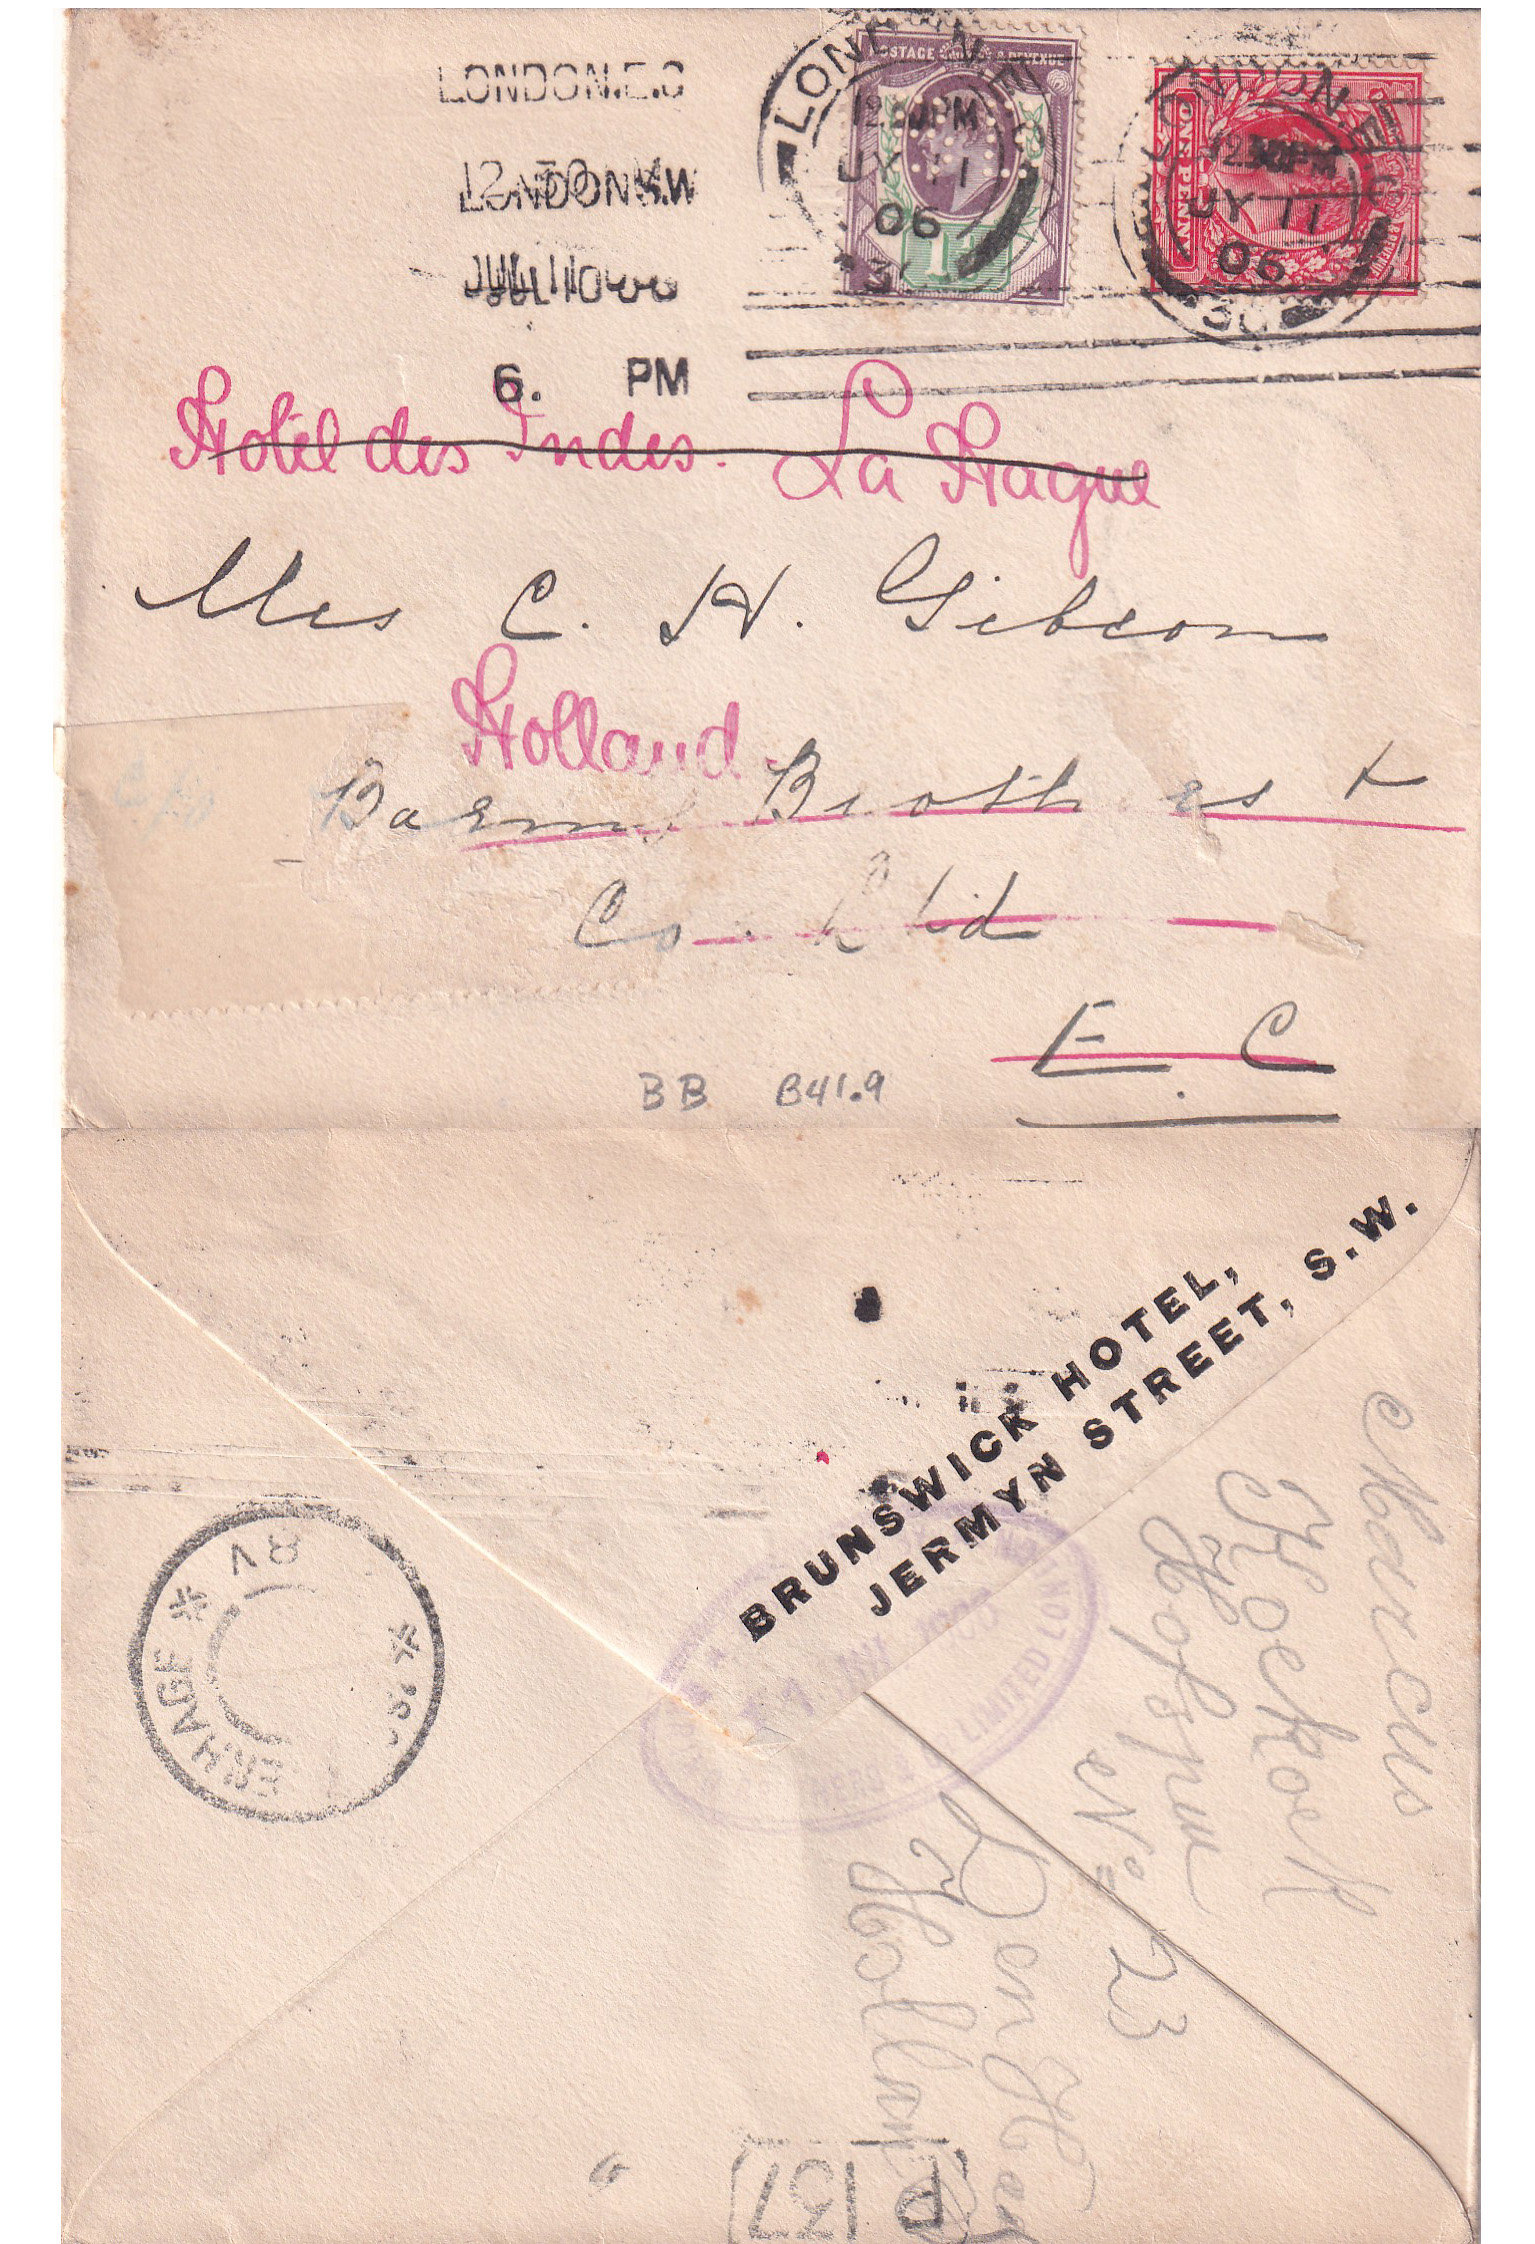 LONDON.E.C
12.30 PM
LONDON.S.W
JUL 11 06
6. PM
LONDON.E.C
12.30PM
JY 11
06
30
POSTAGE & REVENUE
1½
LONDON.E.C
12.30PM
JY 11
06
30
ONE PENNY
Hotel des Indes. La Haague
Mrs C. H. Gibson
Holland.
Baring Brothers &
Co Ltd
E. C
BB B41.9
BRUNSWICK HOTEL,
JERMYN STREET, S.W.
LIMITED LON
Marcus
Koekoek
Hofspui
No 23
Den Haag
Holland
P 137